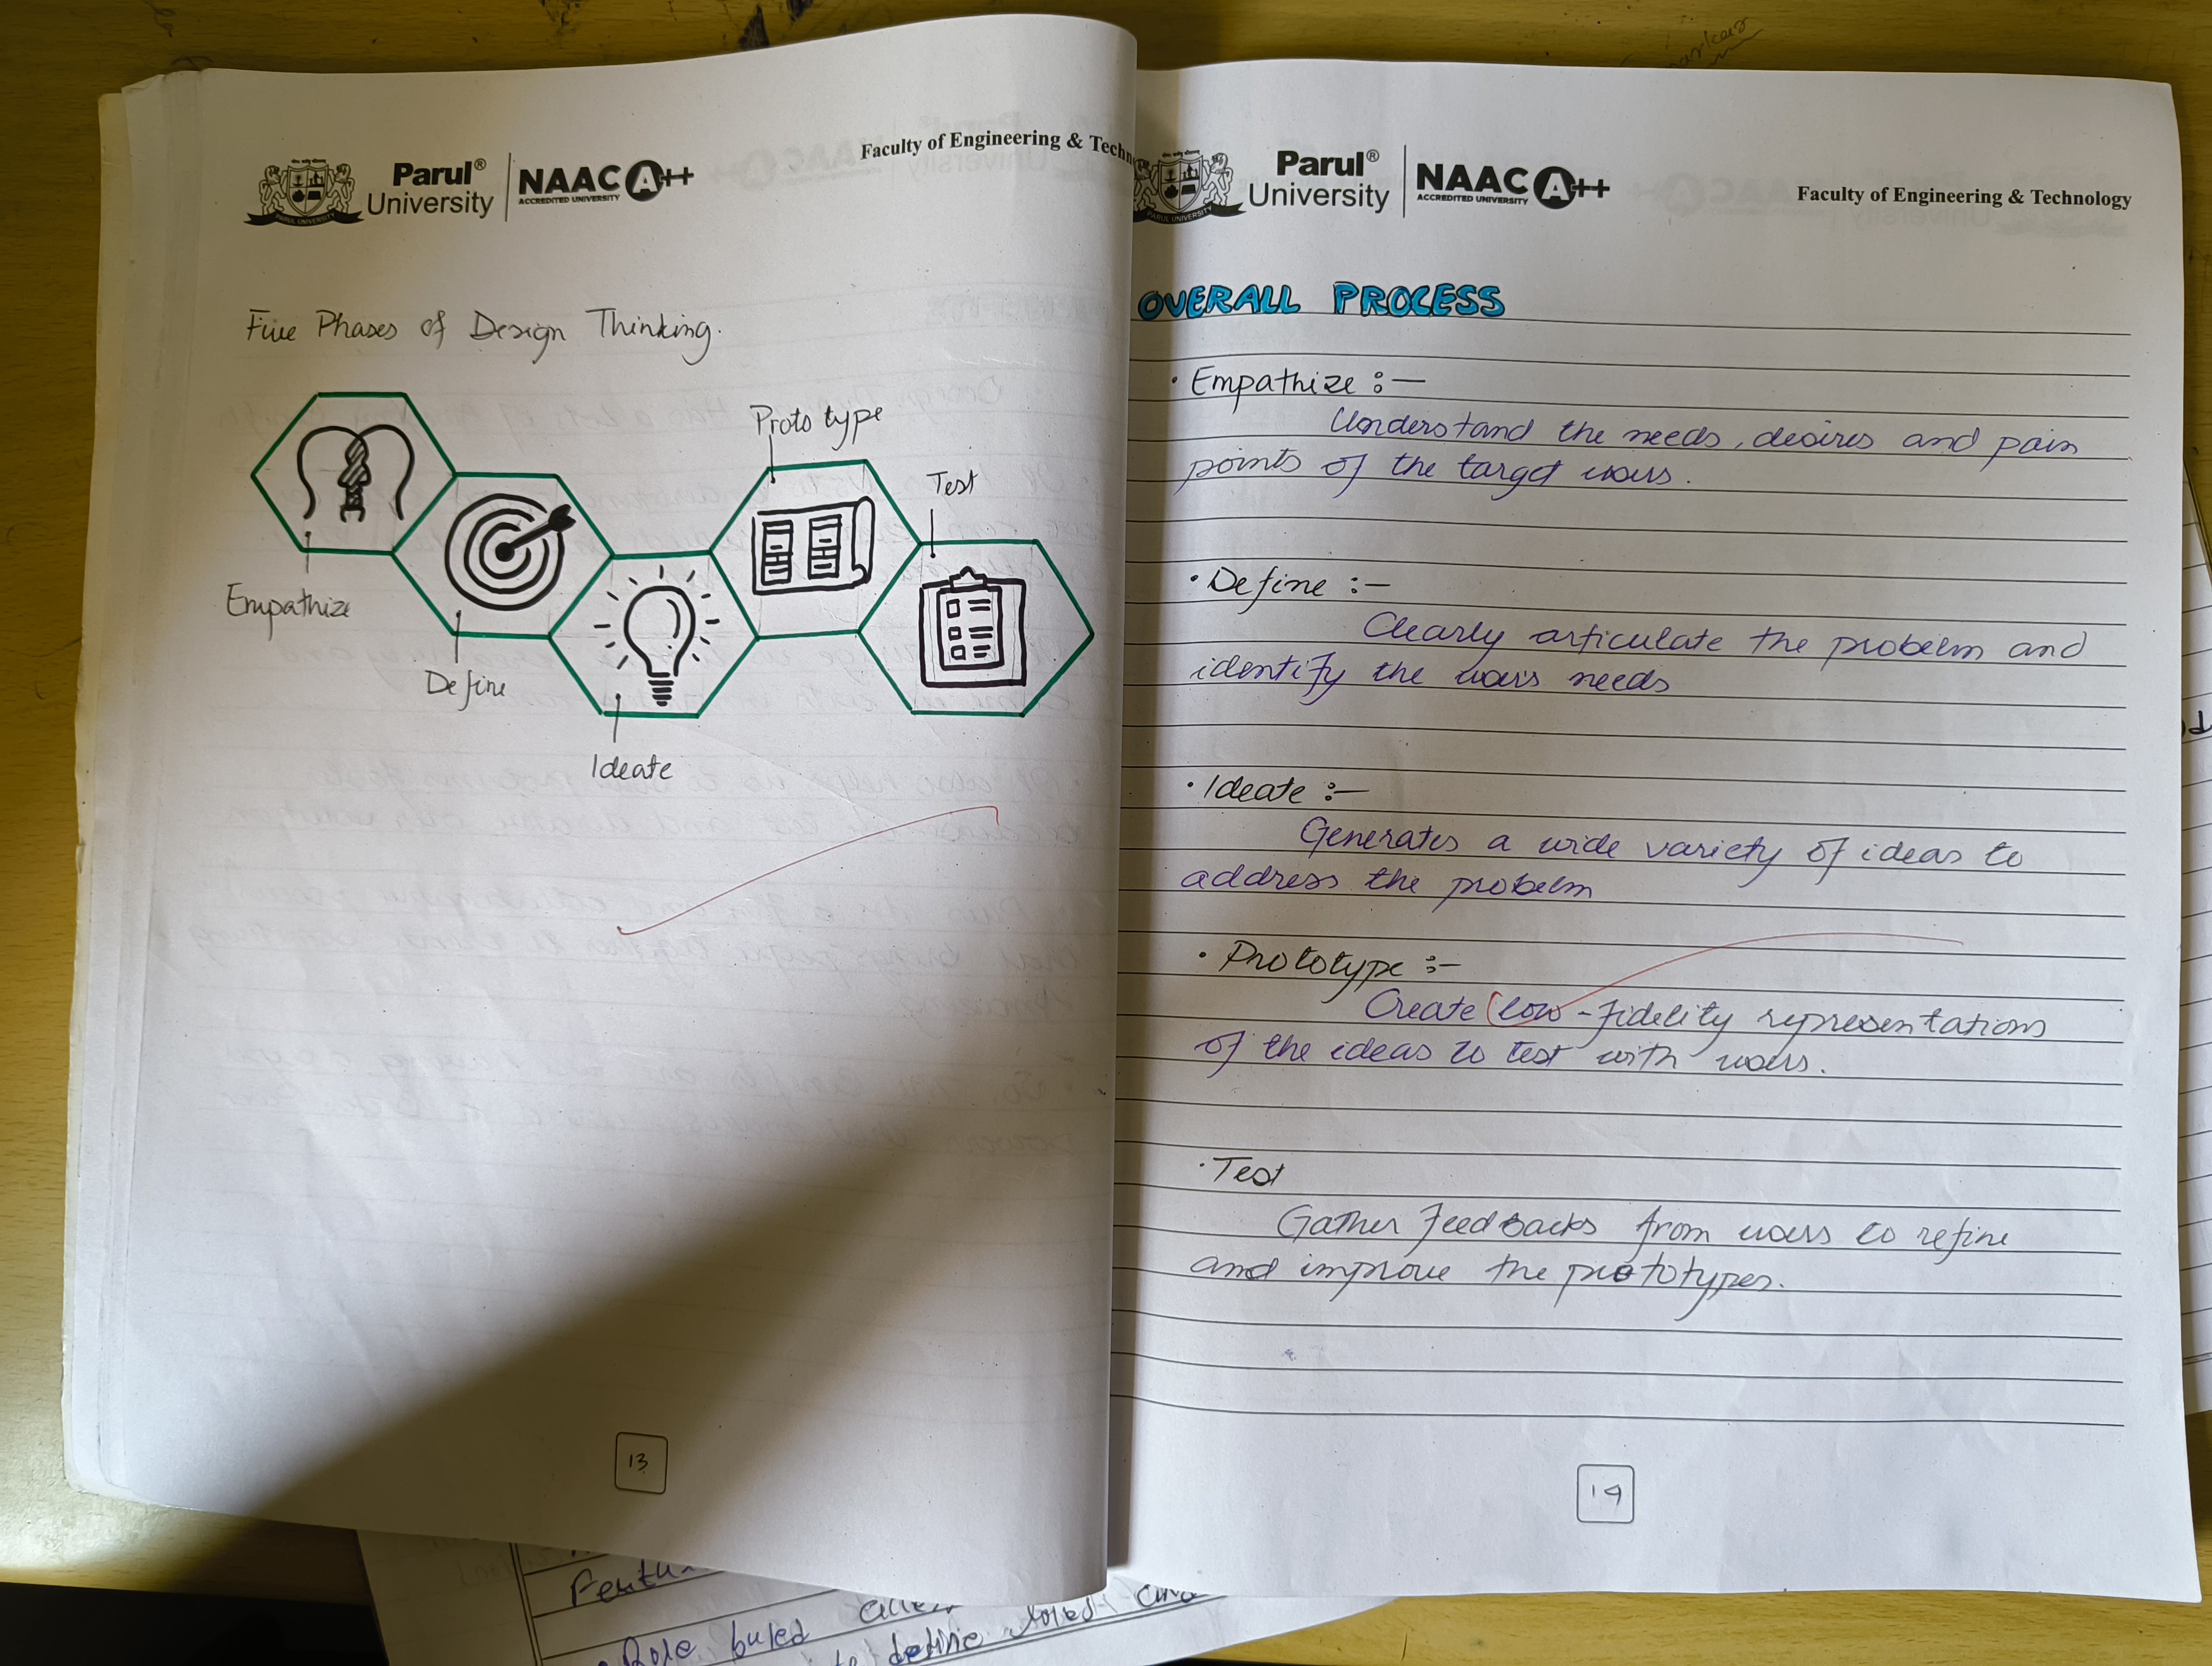 Parul®
University
NAAC A++
ACCREDITED UNIVERSITY
PARUL UNIVERSITY
Faculty of Engineering & Techn
Five Phases of Design Thinking.
Prototype
Test
Empathize
Define
Ideate
13
Parul®
University
NAAC A++
ACCREDITED UNIVERSITY
PARUL UNIVERSITY
Faculty of Engineering & Technology
OVERALL PROCESS
• Empathize :-
Understand the needs, desires and pain
points of the target users.
• Define :-
Clearly articulate the probelm and
identify the users needs
• Ideate :-
Generates a wide variety of ideas to
address the probelm
• Prototype :-
Create low-fidelity representations
of the ideas to test with users.
• Test
Gather Feedbacks from users to refine
and improve the prototypes.
14
Role
define